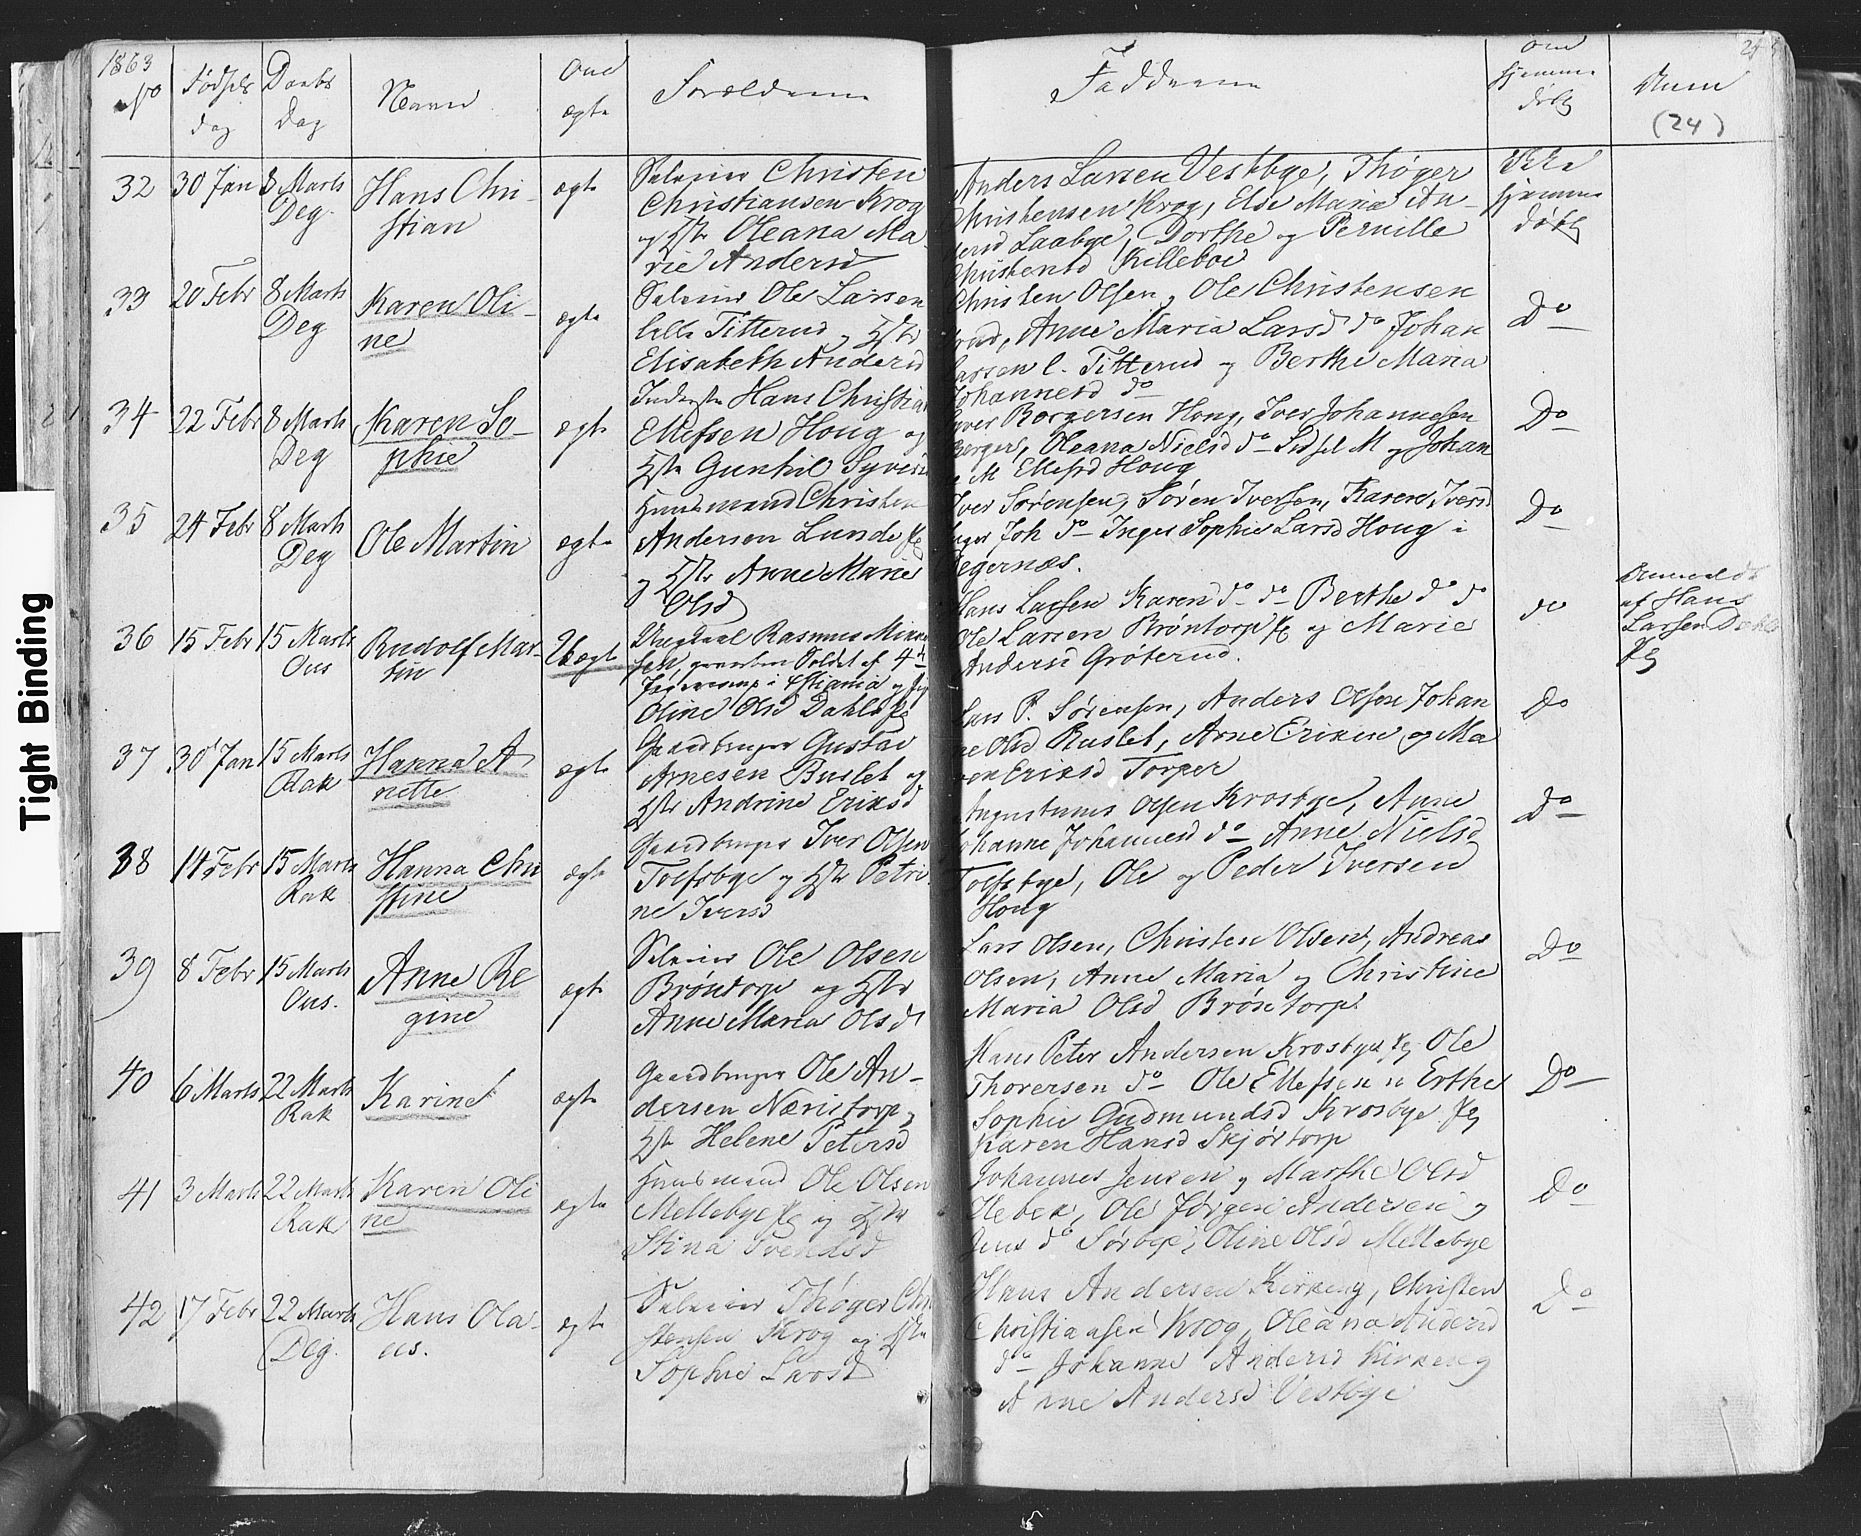 1863
No
Fødsels
dag
Daabs
dag
Navn
Om
ægte
Forældrene
Faddrene
om
hjemme
døbt
Anm
(24)
Tight Binding
32 30 Jan 8 Marts
Deg.
Hans Chri-
stian
ægte
Selveier Christen
Christiansen Krog
og Hstr Oleana Ma-
rie Andersd
Anders Larsen Vestbye, Thøger
Christensen Krog, Else Maria An-
dersd Laabye, Dorthe og Pernille
Christensd Killeboe
Ikke
hjemme
døbt
33 20 Febr 8 Marts
Deg
Karen Oli-
ne
ægte
Selveier Ole Larsen
lille Titterud og Hstr
Elisabeth Andersd
Christen Olsen, Ole Christensen
rud, Anne Maria Larsd do Johan
Larsen l. Titterud og Berthe Maria
Johannesd do
Do
34 22 Febr 8 Marts
Deg
Karen So-
phie
ægte
Inderste Hans Christian
Ellefsen Houg og
Hstr Gunhil Syversd
Borgersen Houg, Iver Johannesen
Berger, Oleana Nielsd do Sidsel M og Johan
M Ellefsd Houg
Do
35 24 Febr 8 Marts
Deg
Ole Martin
ægte
Huusmand Christen
Andersen Lunde Eg
og Hstr Anne Marie
Olsd
Iver Sørensen, Søren Iversen, Karen Iversd
Inger Joh do Inger Sophie Larsd Houg i
Degernæs.
Do
36 15 Febr 15 Marts
Ous
Rudolf Mar-
tin
Uægte
Ungkarl Rasmus
Soldat af 4de
Jægercorps i Xstiania og Pige
Oline Olsd Dahl Eg
Hans Larsen Karen do do Berthe do do
Ole Larsen Brøntorp Eg og Marie
Andersd Grøterud.
do
Anmeldt
af Hans
Larsen Dahl
Eg
37 30 Jan 15 Marts
Rak
Hanna A
nette
ægte
Gaardbruger Gustav
Arnesen Buslet og
Hstr Andrine Eriksd
Lars P. Sørensen, Anders Olsen Johan
ne Olsd Ruslet, Arne Eriksen og Ma
ren Eriksd Torper
Do
38 14 Febr 15 Marts
Rak
Hanna Chri
stine
ægte
Gaardbruger Iver Olsen
Tolfsbye og Hstr Petri-
ne Iversd
Augustinus Olsen Krosbye, Anne
Johanne Johannesd do Anne Nielsd
Tolfsbye, Ole og Peder Iversen
Houg
Do
39 8 Febr 15 Marts
Ous.
Anne Re
gine
ægte
Selveier Ole Olsen
Brøntorp og Hstr
Anne Maria Olsd
Lars Olsen, Christen Olsen, Andreas
Olsen, Anne Maria og Christine
Maria Olsd Brøntorp
Do
40 6 Marts 22 Marts
Rak
Karine
ægte
Gaardbruger Ole An-
dersen Næristorp og
Hstr Helene Petersd
Hans Peter Andersen Krosbye Eg Ole
Thoversen do Ole Ellefsen Erthe
Sophie Gudmundsd Krosbye Eg
Karen Hansd Skjørtorp
Do
41 3 Marts 22 Marts
Rak
Karen Oli
ne
ægte
Huusmand Ole Olsen
Mellebye Eg og Hstr
Stina Svendsd
Johannes Jensen og Marthe Olsd
Hebek, Ole Jørgen Andersen og
Jens do Sørbye, Oline Olsd Mellebye
Do
42 17 Febr 22 Marts
Deg.
Hans Ola-
us.
ægte
Selveier Thøger Chri
stensen Krog og Hstr
Sophie Larsd
Hans Andersen Kirkeng, Christen
Christiansen Krog, Oleana Andersd
do Johanne Andersd Kirkeng
Anne Andersd Vestbye
Do